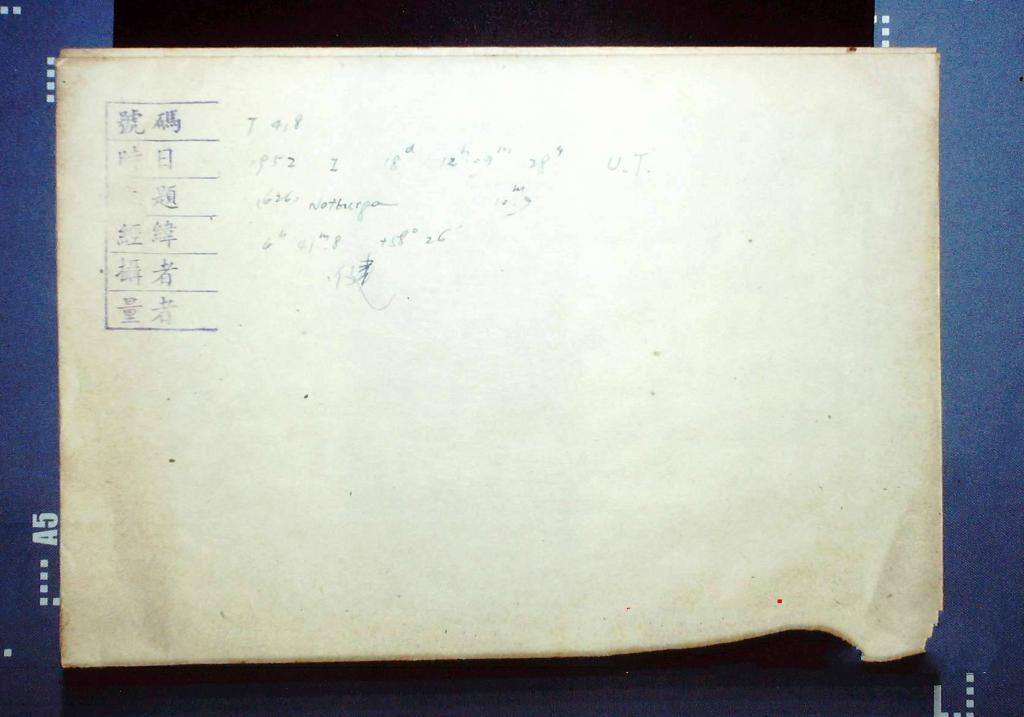 號碼 T 418
時日 1952 I 18ᵈ 12ʰ 09ᵐ 28ˢ U.T.
題 (626) Notburga 10ᵐ.9
經緯 4ʰ 41ᵐ.8 +58° 26'
攝者
量者
A5